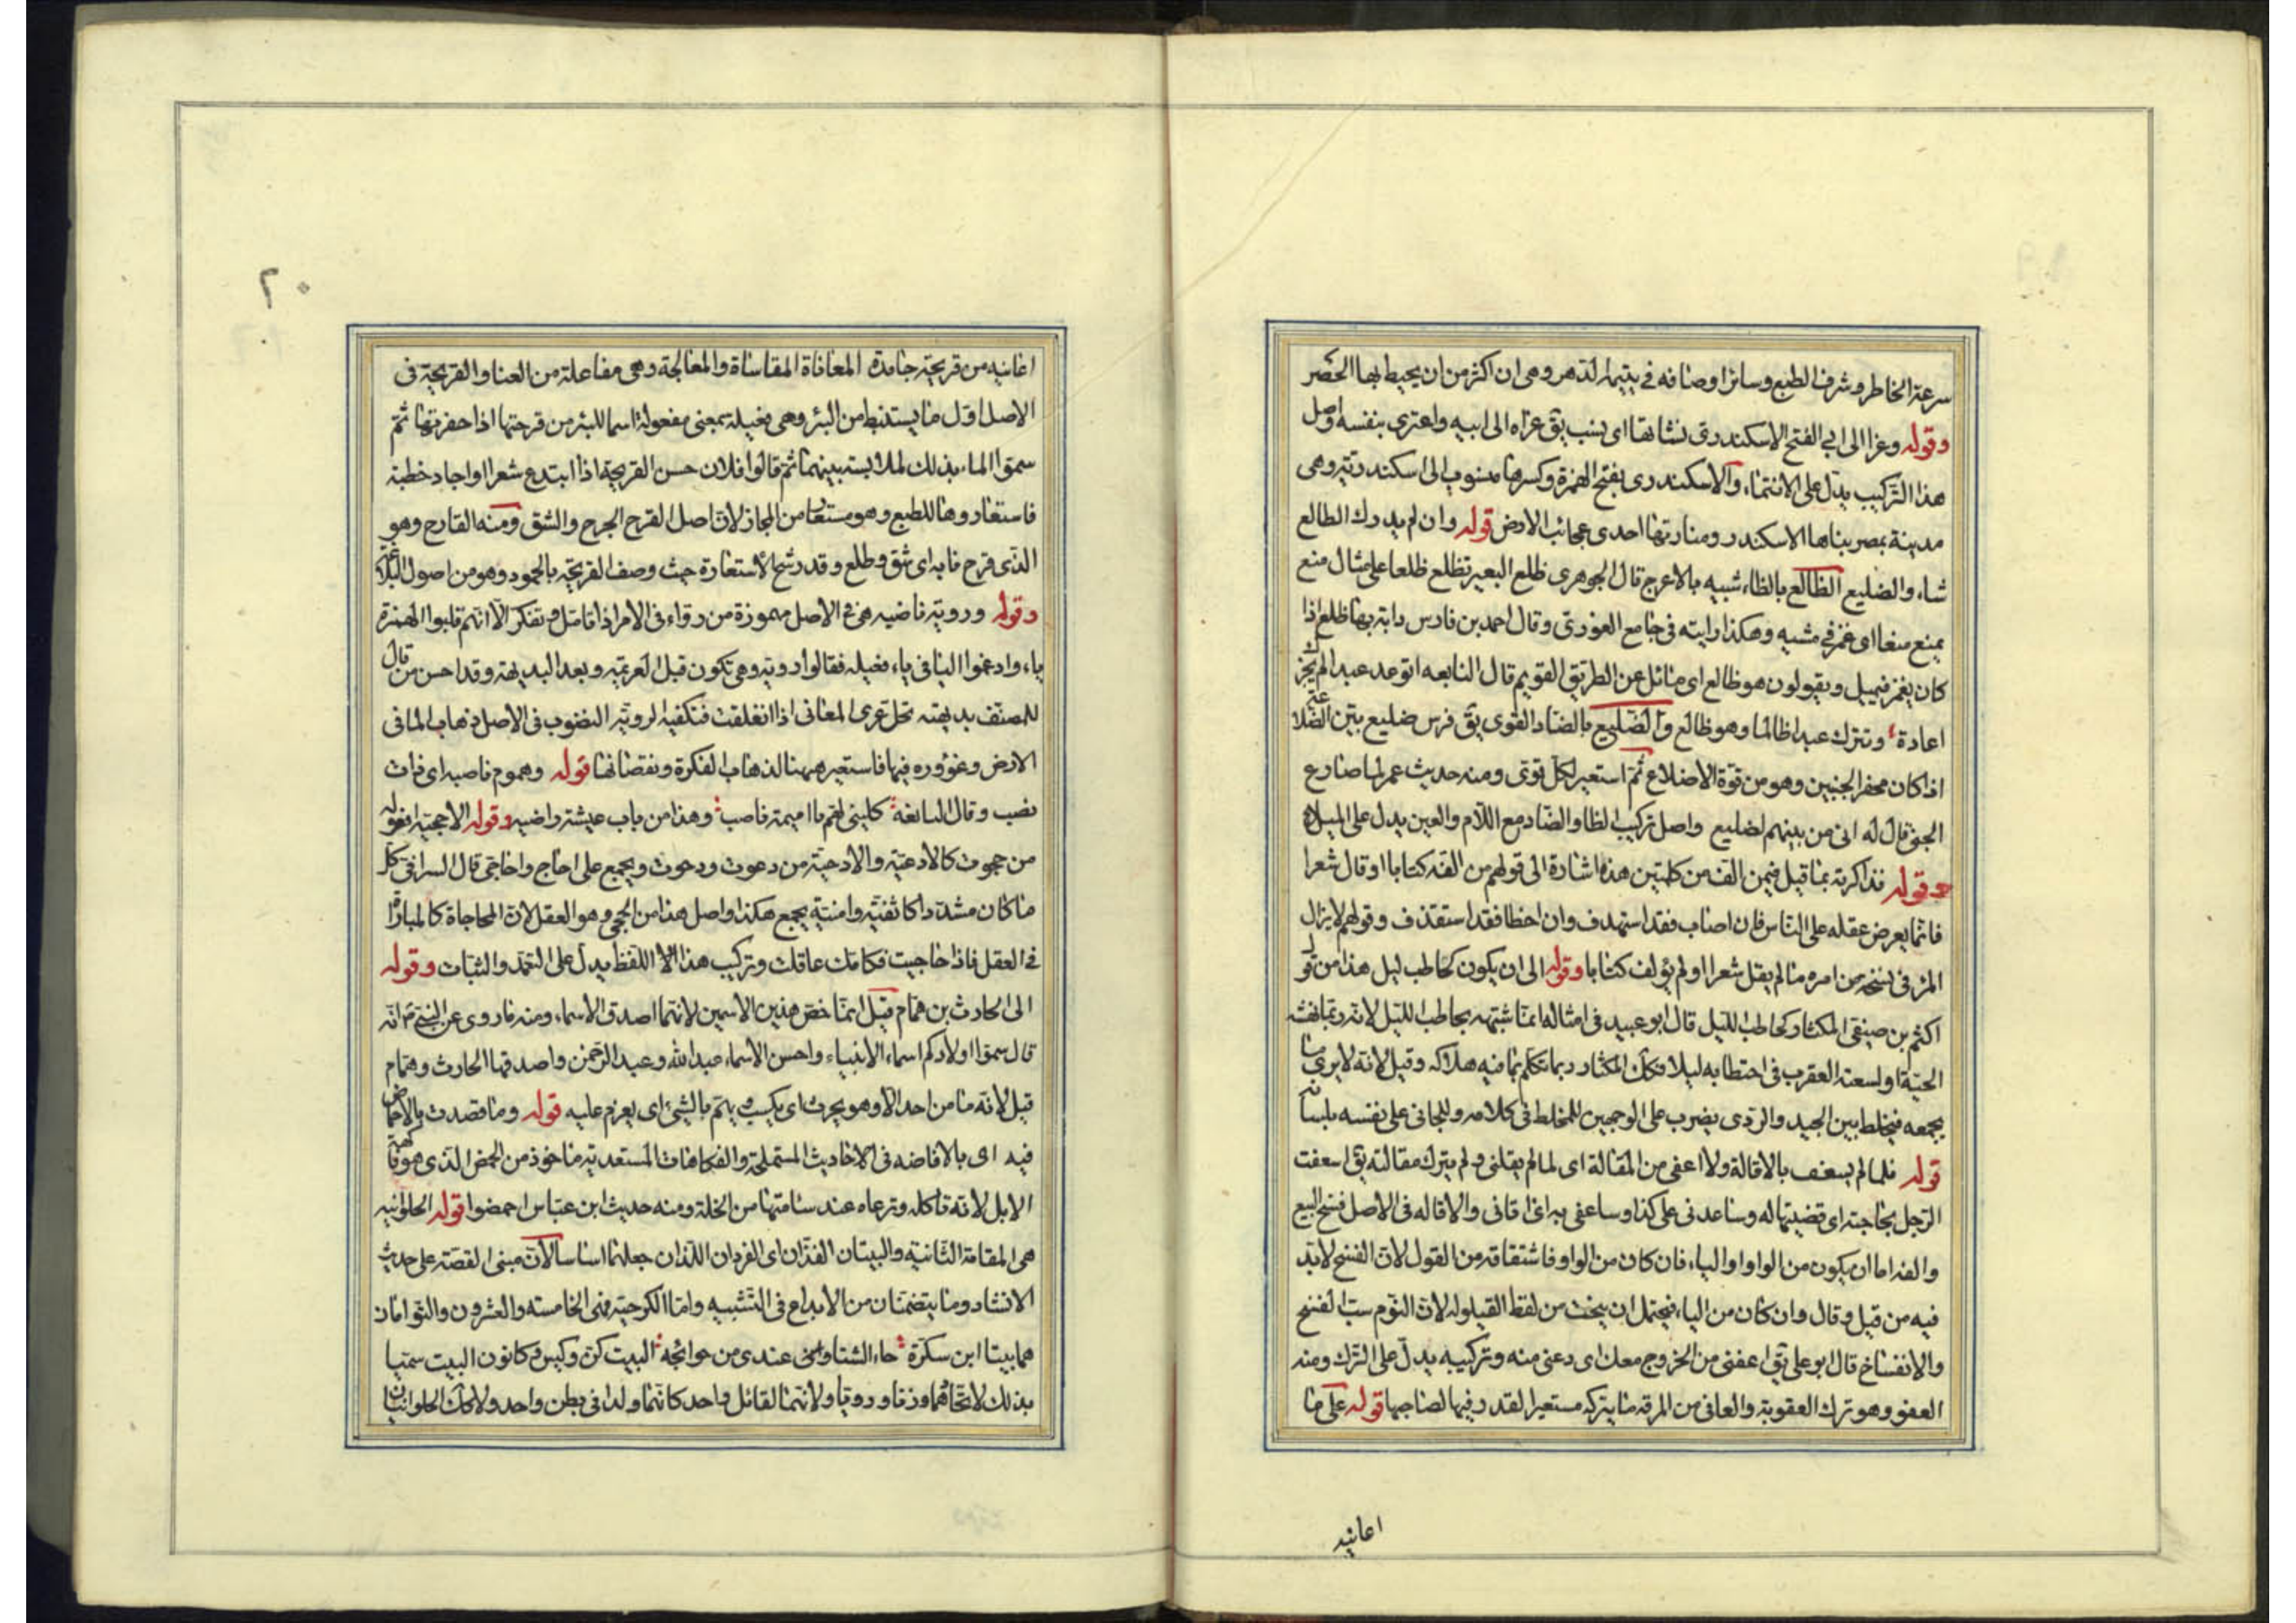 سرعة الخاطر وشرف الطبع وسائر اوصافه في يتيمة الدهر وهي ان اكثر من ان يحيط بها الحصر
وقوله وعزا الى ابي الفتح الاسكندرى نشاتها اى ينسب يق عزاه الى ابيه واعتزى بنفسه واصل
هذا التركيب يدل على الانتماء والاسكندرى بفتح الهمزة وكسرها منسوب الى اسكندرية وهى
مدينة بمصر بناها الاسكندر ومنارتها احدى عجائب الارض قوله وان لم يدرك الظالع
شاء والضليع الظالع بالظاء شبيه بالاعرج قال الجوهرى ظلع البعير تظلع ظلعا على مثال منع
يمنع منعا اى غمز في مشيه وهكذا رايته فى جامع الغورى وقال احمد بن فارس دابة بها ظلع اذا
كان يغمز فيميل ويقولون هو ظالع اى مائل عن الطريق القويم قال النابغه اتوعد عبدا لم يخنك
اعادة وتترك عبدا ظالما وهو ظالع والضليع بالضاد القوى يق فرس ضليع بين الضلاعة
اذا كان مجفر الجنبين وهو من قوة الاضلاع ثم استعير لكل قوى ومنه حديث عمر لما صارع
الجنى قال له انى من بينهم لضليع واصل تركيب الظا والضاد مع اللام والعين يدل على الميل
وقوله فذاكرته بما قيل فيمن الف من كلمتين هذه اشارة الى قولهم من الف كتابا او قال شعرا
فانما يعرض عقله على الناس فان اصاب فقد استهدف وان اخطا فقد استقذف وقولهم لا يزال
المرء فى فسحة من امره ما لم يقل شعرا او لم يؤلف كتابا وقوله الى ان يكون كحاطب ليل هذا من قول
اكثم بن صيفى المكثار كحاطب الليل قال ابو عبيد فى امثاله انما شبهه بحاطب الليل لانه ربما نهشته
الحية او لسعته العقرب فى احتطابه ليلا فكك المكثار ربما تكلم بما فيه هلاكه وقيل لانه لا يرى ما
يجمعه فيخلط بين الجيد والردى يضرب على الوجهين للمخلط فى كلامه وللجانى على نفسه بلسانه
قوله فلما لم يسعف بالاقالة ولا اعفى من المقالة اى لما لم يقلنى ولم يترك مقالته يق اسعفت
الرجل بحاجته اى قضيتها له وساعدنى على كذا وساعفى به اى اقانى والاقاله فى الاصل فسخ البيع
والفه اما ان يكون من الواو او الياء فان كان من الواو فاشتقاقه من القول لان الفسخ لابد
فيه من قيل وقال وان كان من الياء فيحتمل ان ينحت من لفظ القيلوله لان النوم سبب لفسخ
والانفساخ قال ابو على يق اعفنى من الخروج معك اى دعنى منه وتركيبه يدل على الترك ومنه
العفو وهو ترك العقوبة والعافى من المرقه ما يتركه مستعير القدر فيها لصاحبها قوله على ما
اعانيه
٢٠
اعانيه من قريحة جامدة المعاناة المقاساة والمعالجة وهى مفاعلة من العناء والقريحة فى
الاصل اول ما يستنبط من البئر وهى فعيلة بمعنى مفعولة اسما للبئر من قرحتها اذا حفرتها ثم
سموا الماء بذلك لملابسة بينهما ثم قالوا فلان حسن القريحة اذا ابتدع شعرا او اجاد خطبة
فاستعاروها للطبع وهو مستعار من المجاز لان اصل القرح الجرح والشق ومنه القارح وهو
الذى قرح نابه اى شق وطلع وقد رشح الاستعارة حيث وصف القريحة بالجمود وهو من اصول البلاغة
وقوله وروية ناضبه هى فى الاصل مهموزة من رواء فى الامر اذا تامل وتفكر الا انهم قلبوا الهمزة
ياء وادغموا اليا فى ياء فعيله فقالوا روية وهى تكون قبل العزيمة وبعد البديهة وقد احسن من قال
للمصنف بديهته تحل عرى المعانى اذا انغلقت فتكفيه الروية النضوب فى الاصل ذهاب الما فى
الارض وغؤوره فيها فاستعير ههنا لذهاب الفكرة ونقصانها قوله وهموم ناصبه اى ذات
نصب وقال النابغة كلينى لهم يا اميمة ناصب وهذا من باب عيشة راضيه وقوله الاحجية افعوله
من حجوت كالادعية والادحية من دعوت ودحوت ويجمع على احاج واحاجى قال السرافى كل
ما كان مشددا كاثفية وامنية يجمع هكذا واصل هذا من الحجى وهو العقل لان المحاجاة كالمباراة
فى العقل فاذا حاجيت فكانك عاقلت وتركيب هذا اللفظ يدل على التعمد والثبات وقوله
الى الحارث بن همام قيل انما خص هذين الاسمين لانهما اصدق الاسماء ومنه ما روى عن النبى انه
قال سموا اولادكم اسماء الانبياء واحسن الاسماء عبد الله وعبد الرحمن واصدقها الحارث وهمام
قيل لانه ما من احد الا وهو يحرث اى يكسب ويهم بالشئ اى يعزم عليه قوله وما قصدت بالاحماض
فيه اى بالافاضه فى الاحاديث المستملحة والفكاهات المستعذبه ماخوذ من الحمض الذى هو فاكهة
الابل لانه تاكله وترعاه عند سامتها من الخلة ومنه حديث ابن عباس احمضوا قوله الحلوانيه
هى المقامة الثانيه والبيتان الفذان اى الفردان اللذان جعلهما اساسا لان مبنى القصة على حديث
الانشاد وما يتضمنان من الابداع فى التشبيه واما الكرجية فهى الخامسة والعشرون والتوامان
هما بيتا ابن سكرة جاء الشتاء وعندى من حوائجه البيت كن وكيس وكانون البيت سميا
بذلك لاتحادهما وزنا ورويا ولانهما لقائل واحد كانهما ولدا فى بطن واحد ولا كك الحلوانيان